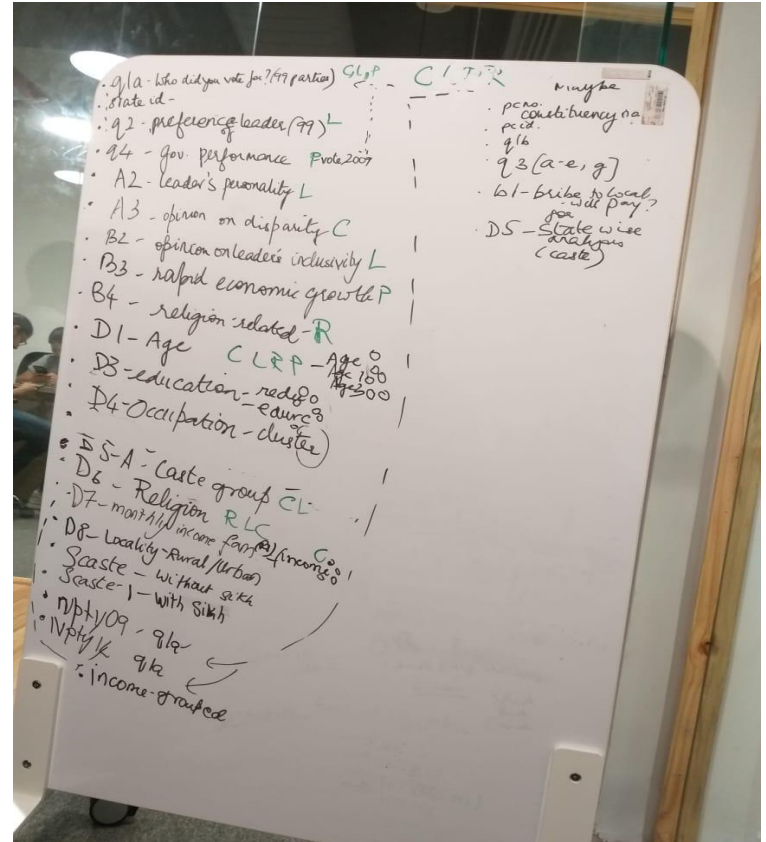 · q1a - Who did you vote for? (99 parties) C L R P
· state id -
· q2 - preference of leader (99) L
· q4 - gov. performance P vote 2009
· A2 - leader's personality L
· A3 - opinion on disparity C
· B2 - opinion on leader's inclusivity L
· B3 - rapid economic growth P
· B4 - religion-related - R
· D1 - Age C L R P - Age
· D3 - education -
· D4 - Occupation - cluster
· D5-A - Caste group CL
· D6 - Religion R L C
· D7 - monthly income
· D8 - Locality - Rural/Urban
· Scaste - without sikh
· Scaste-1 - With Sikh
· Npty09 - q1a
q1a
· income-grouped
Maybe
· pcno.
constituency na
· pcid.
· q1b
· q3 [a-e, g]
· b1 - bribe to local
will pay?
· D5 - State wise
analysis
(caste)